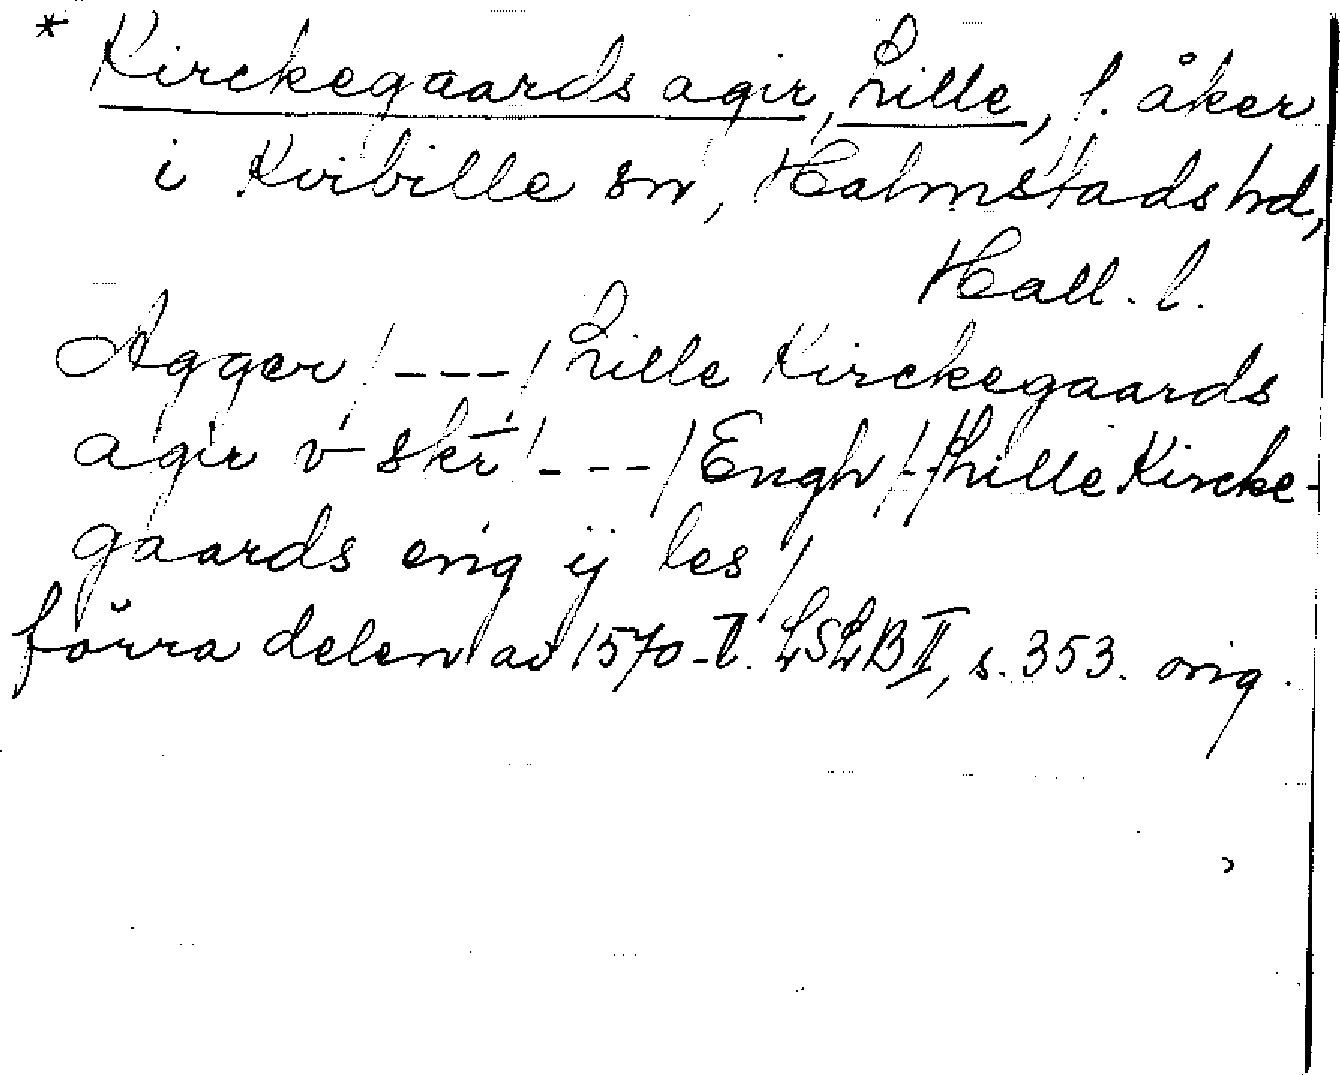 * Kirckegaards agir, Lille, f. åker
i Kvibille sn, Halmstads hd,
Hall. l.
Agger /---/ Lille Kirckegaards
agir v skr̄ /---/ Engh /--/ Lille Kircke-
gaards eng ij les /
förra delen av 1570-t. LSLB II, s. 353. orig.